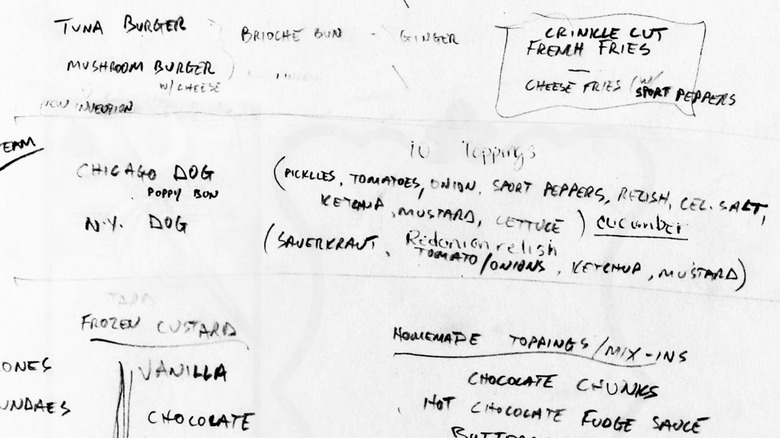 TUNA BURGER BRIOCHE BUN - GINGER
MUSHROOM BURGER
W/ CHEESE
CRINKLE CUT
FRENCH FRIES
—
CHEESE FRIES W/
SPORT PEPPERS
NEW INVENTION
EAM
10 Toppings
CHICAGO DOG
POPPY BUN
(PICKLES, TOMATOES, ONION, SPORT PEPPERS, RELISH, CEL. SALT,
KETCHUP, MUSTARD, LETTUCE) cucumber
N.Y. DOG
(SAUERKRAUT, Red onion relish
TOMATO/ONIONS, KETCHUP, MUSTARD)
FROZEN CUSTARD
ONES
UNDAES
VANILLA
CHOCOLATE
HOMEMADE TOPPINGS/MIX-INS
CHOCOLATE CHUNKS
HOT CHOCOLATE FUDGE SAUCE